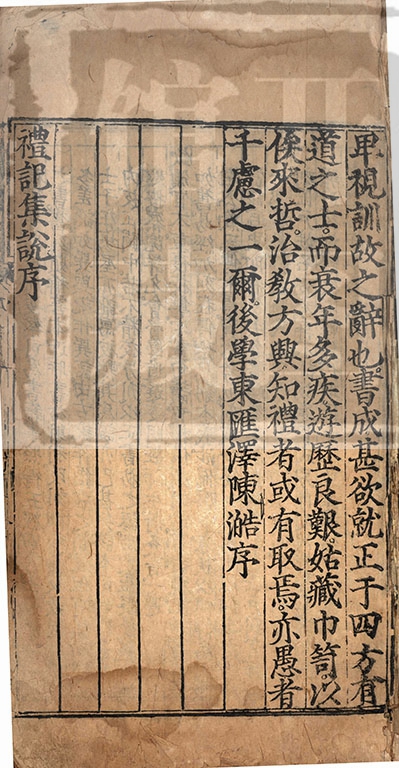 卑視訓故之辭也書成甚欲就正于四方有
道之士。而衰年多疾遊歷良艱。姑藏巾笥。以
俟來哲。治敎方興。知禮者或有取焉。亦愚者
千慮之一爾。後學東匯澤陳澔序
禮記集說序